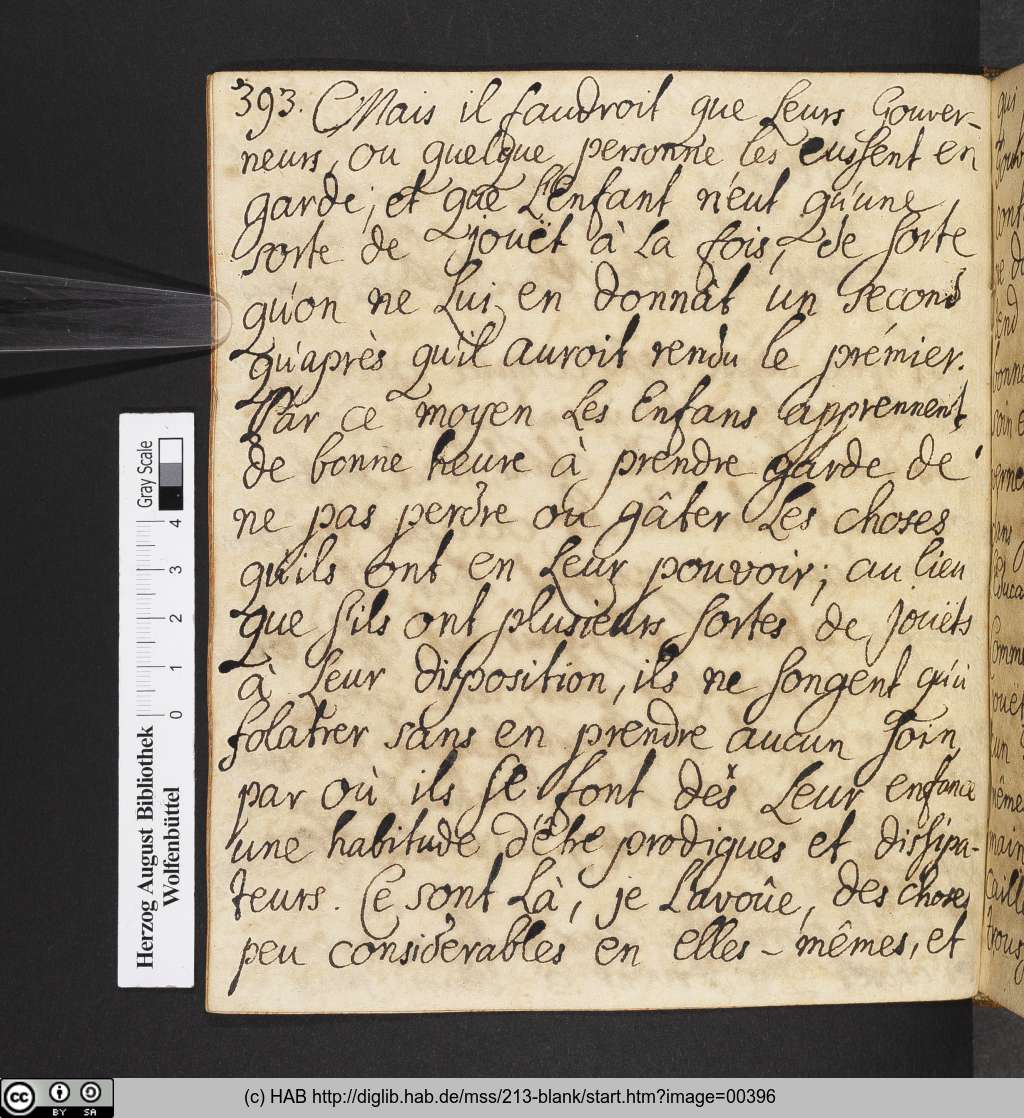 393. Mais il faudroit que Leurs Gouver-
neurs, ou quelque personne les eussent en
garde; et que L'enfant n'eut qu'une
sorte de jouët à La fois, de sorte
qu'on ne Lui en donnât un second
qu'après qu'il auroit rendu le prémier.
Par ce moyen Les Enfans apprennent
de bonne heure à prendre garde de
ne pas perdre ou gâter Les choses
qu'ils ont en Leur pouvoir; au lieu
que s'ils ont plusieurs sortes de jouëts
à Leur disposition, ils ne songent qu'à
folatrer sans en prendre aucun soin,
par où ils se font dés Leur enfance
une habitude d'être prodigues et dissipa-
teurs. Ce sont Là, je L'avoûe, des choses
peu considerables en elles-mêmes, et
qui
Herzog August Bibliothek
Wolfenbüttel
Gray Scale
0 1 2 3 4
cc BY SA
(c) HAB http://diglib.hab.de/mss/213-blank/start.htm?image=00396